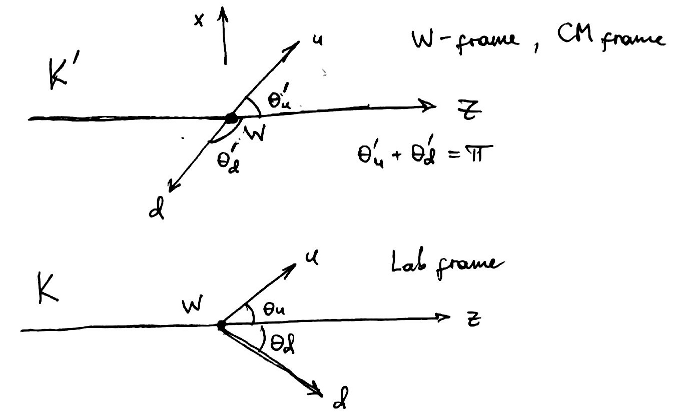 x
u
W-frame, CM frame
K'
θ'u
z
W
θ'd
θ'u + θ'd = π
d
u
Lab frame
K
W
θu
z
θd
d